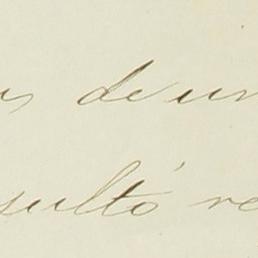 de un
sultó re